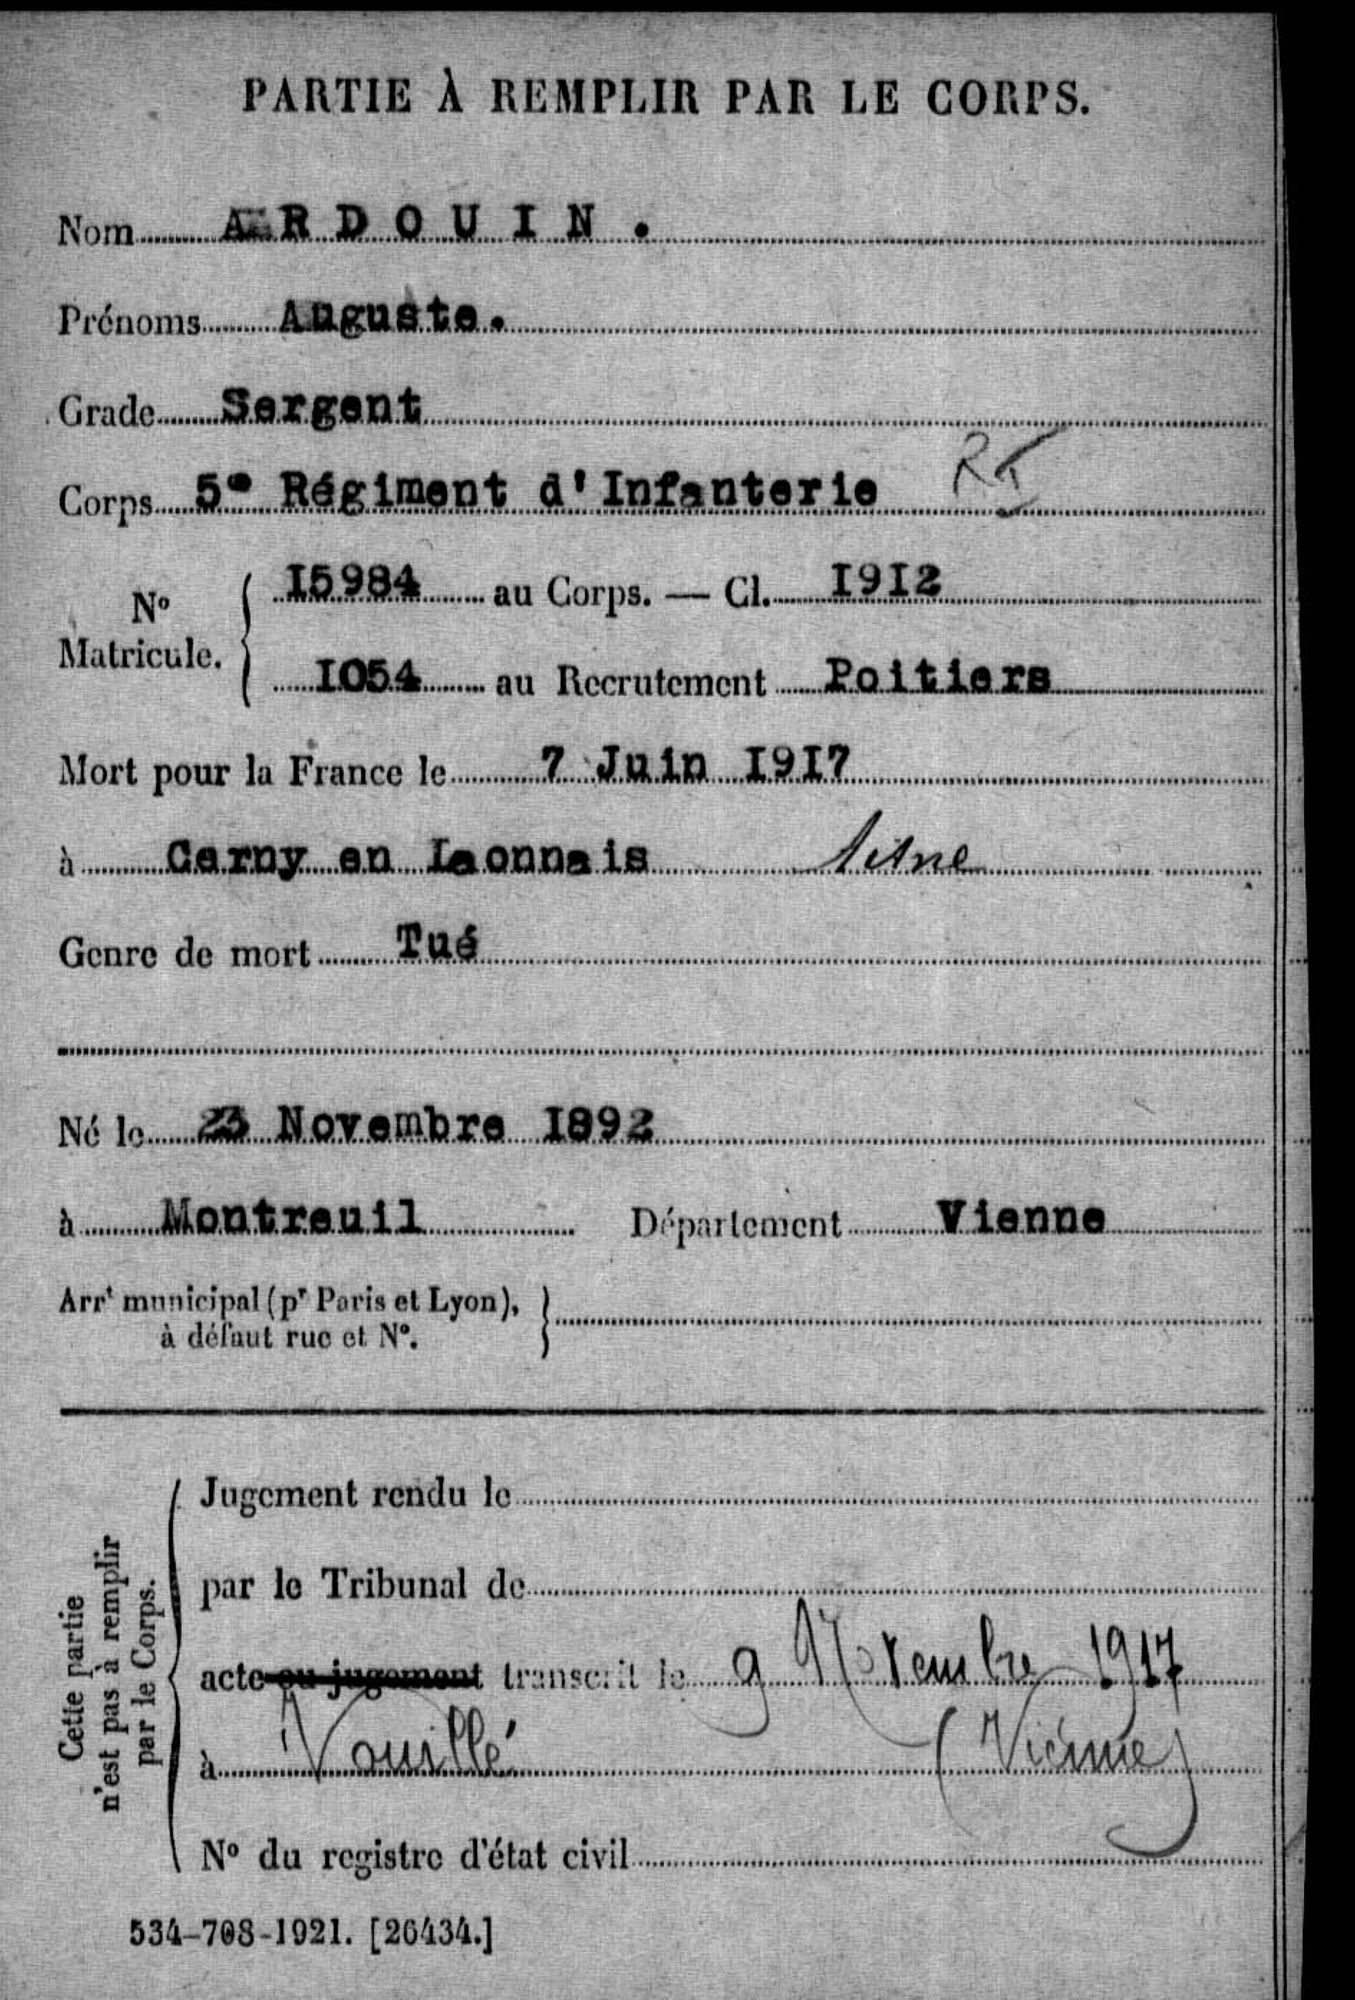 PARTIE À REMPLIR PAR LE CORPS.
Nom ARDOUIN.
Prénoms Auguste.
Grade Sergent
Corps 5e Régiment d'Infanterie RI
No Matricule. { I5984 au Corps. — Cl. I9I2
I054 au Recrutement Poitiers
Mort pour la France le 7 Juin I9I7
à Cerny en Laonnais Aisne
Genre de mort Tué
Né le 23 Novembre I892
à Montreuil Département Vienne
Arrt municipal (pr Paris et Lyon), à défaut rue et No. }
Cette partie n'est pas à remplir par le Corps. {
Jugement rendu le
par le Tribunal de
acte ou jugement transcrit le 9 Novembre 1917
à Vouillé (Vienne)
No du registre d'état civil
534-708-1921. [26434.]